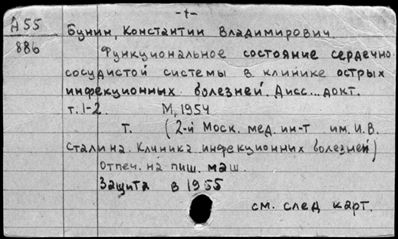 -1-
А55
886
Бунин, Константин Владимирович.
Функциональное состояние сердечно-
сосудистой системы в клинике острых
инфекционных болезней. Дисс... докт.
т. 1-2. М, 1954
Т. (2-й Моск. мед. ин-т им. И.В.
Сталина. Клиника инфекционных болезней)
Отпеч. на пиш. маш.
Защита в 1955
см. след карт.